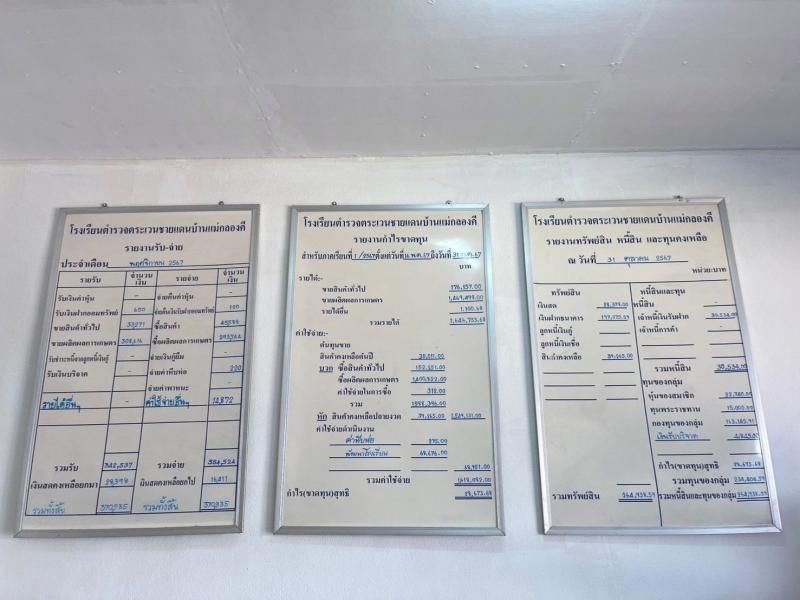 โรงเรียนตำรวจตระเวนชายแดนบ้านแม่กลองคี
รายงานรับ-จ่าย
ประจำเดือน พฤศจิกายน 2567
รายรับ จำนวนเงิน รายจ่าย จำนวนเงิน
รับเงินค่าหุ้น - จ่ายคืนค่าหุ้น -
รับเงินฝากออมทรัพย์ 650 จ่ายคืนเงินรับฝากออมทรัพย์ 100
ขายสินค้าทั่วไป 33271 ซื้อสินค้า
ขายผลิตผลการเกษตร ซื้อผลิตผลการเกษตร
รับชำระหนี้จากลูกหนี้เงินกู้ - จ่ายเงินกู้ยืม -
รับเงินบริจาค - จ่ายค่าหีบห่อ 220
จ่ายค่าพาหนะ -
รายได้อื่นๆ - ค่าใช้จ่ายอื่นๆ 12,872
รวมรับ 342,537 รวมจ่าย 354,524
เงินสดคงเหลือยกมา 28,398 เงินสดคงเหลือยกไป 16,411
รวมทั้งสิ้น 370,935 รวมทั้งสิ้น 370,935
โรงเรียนตำรวจตระเวนชายแดนบ้านแม่กลองคี
รายงานกำไรขาดทุน
สำหรับภาคเรียนที่ 1 / 2567 ตั้งแต่วันที่ 16 พ.ค. 67 ถึงวันที่ 31 ต.ค. 67
บาท
รายได้:-
ขายสินค้าทั่วไป 176,157.00
ขายผลิตผลการเกษตร 1,469,498.00
รายได้อื่น 1,100.68
รวมรายได้ 1,646,755.68
ค่าใช้จ่าย:-
ต้นทุนขาย
สินค้าคงเหลือต้นปี
บวก ซื้อสินค้าทั่วไป
ซื้อผลิตผลการเกษตร
จ่ายค่าใช้จ่ายในการซื้อ 312.00
รวม
หัก สินค้าคงเหลือปลายงวด 39,165.00 1,549,131.00
ค่าใช้จ่ายดำเนินงาน
ค่าหีบห่อ 275.00
พัฒนาโรงเรียน 68,676.00
68,951.00
รวมค่าใช้จ่าย 1,618,082.00
กำไร(ขาดทุน)สุทธิ 28,673.68
โรงเรียนตำรวจตระเวนชายแดนบ้านแม่กลองคี
รายงานทรัพย์สิน หนี้สิน และทุนคงเหลือ
ณ วันที่ 31 ตุลาคม 2567
หน่วย:บาท
ทรัพย์สิน หนี้สินและทุน
เงินสด หนี้สิน
เงินฝากธนาคาร เจ้าหนี้เงินรับฝาก 30,534.00
ลูกหนี้เงินกู้ - เจ้าหนี้การค้า -
ลูกหนี้เงินเชื่อ -
สินค้าคงเหลือ 39,165.00
รวมหนี้สิน 30,534.00
ทุนของกลุ่ม
หุ้นของสมาชิก
ทุนพระราชทาน 15,000.00
กองทุนของกลุ่ม
เงินรับบริจาค
กำไร(ขาดทุน)สุทธิ 28,673.68
รวมทุนของกลุ่ม
รวมทรัพย์สิน 264,938.59 รวมหนี้สินและทุนของกลุ่ม 264,938.59